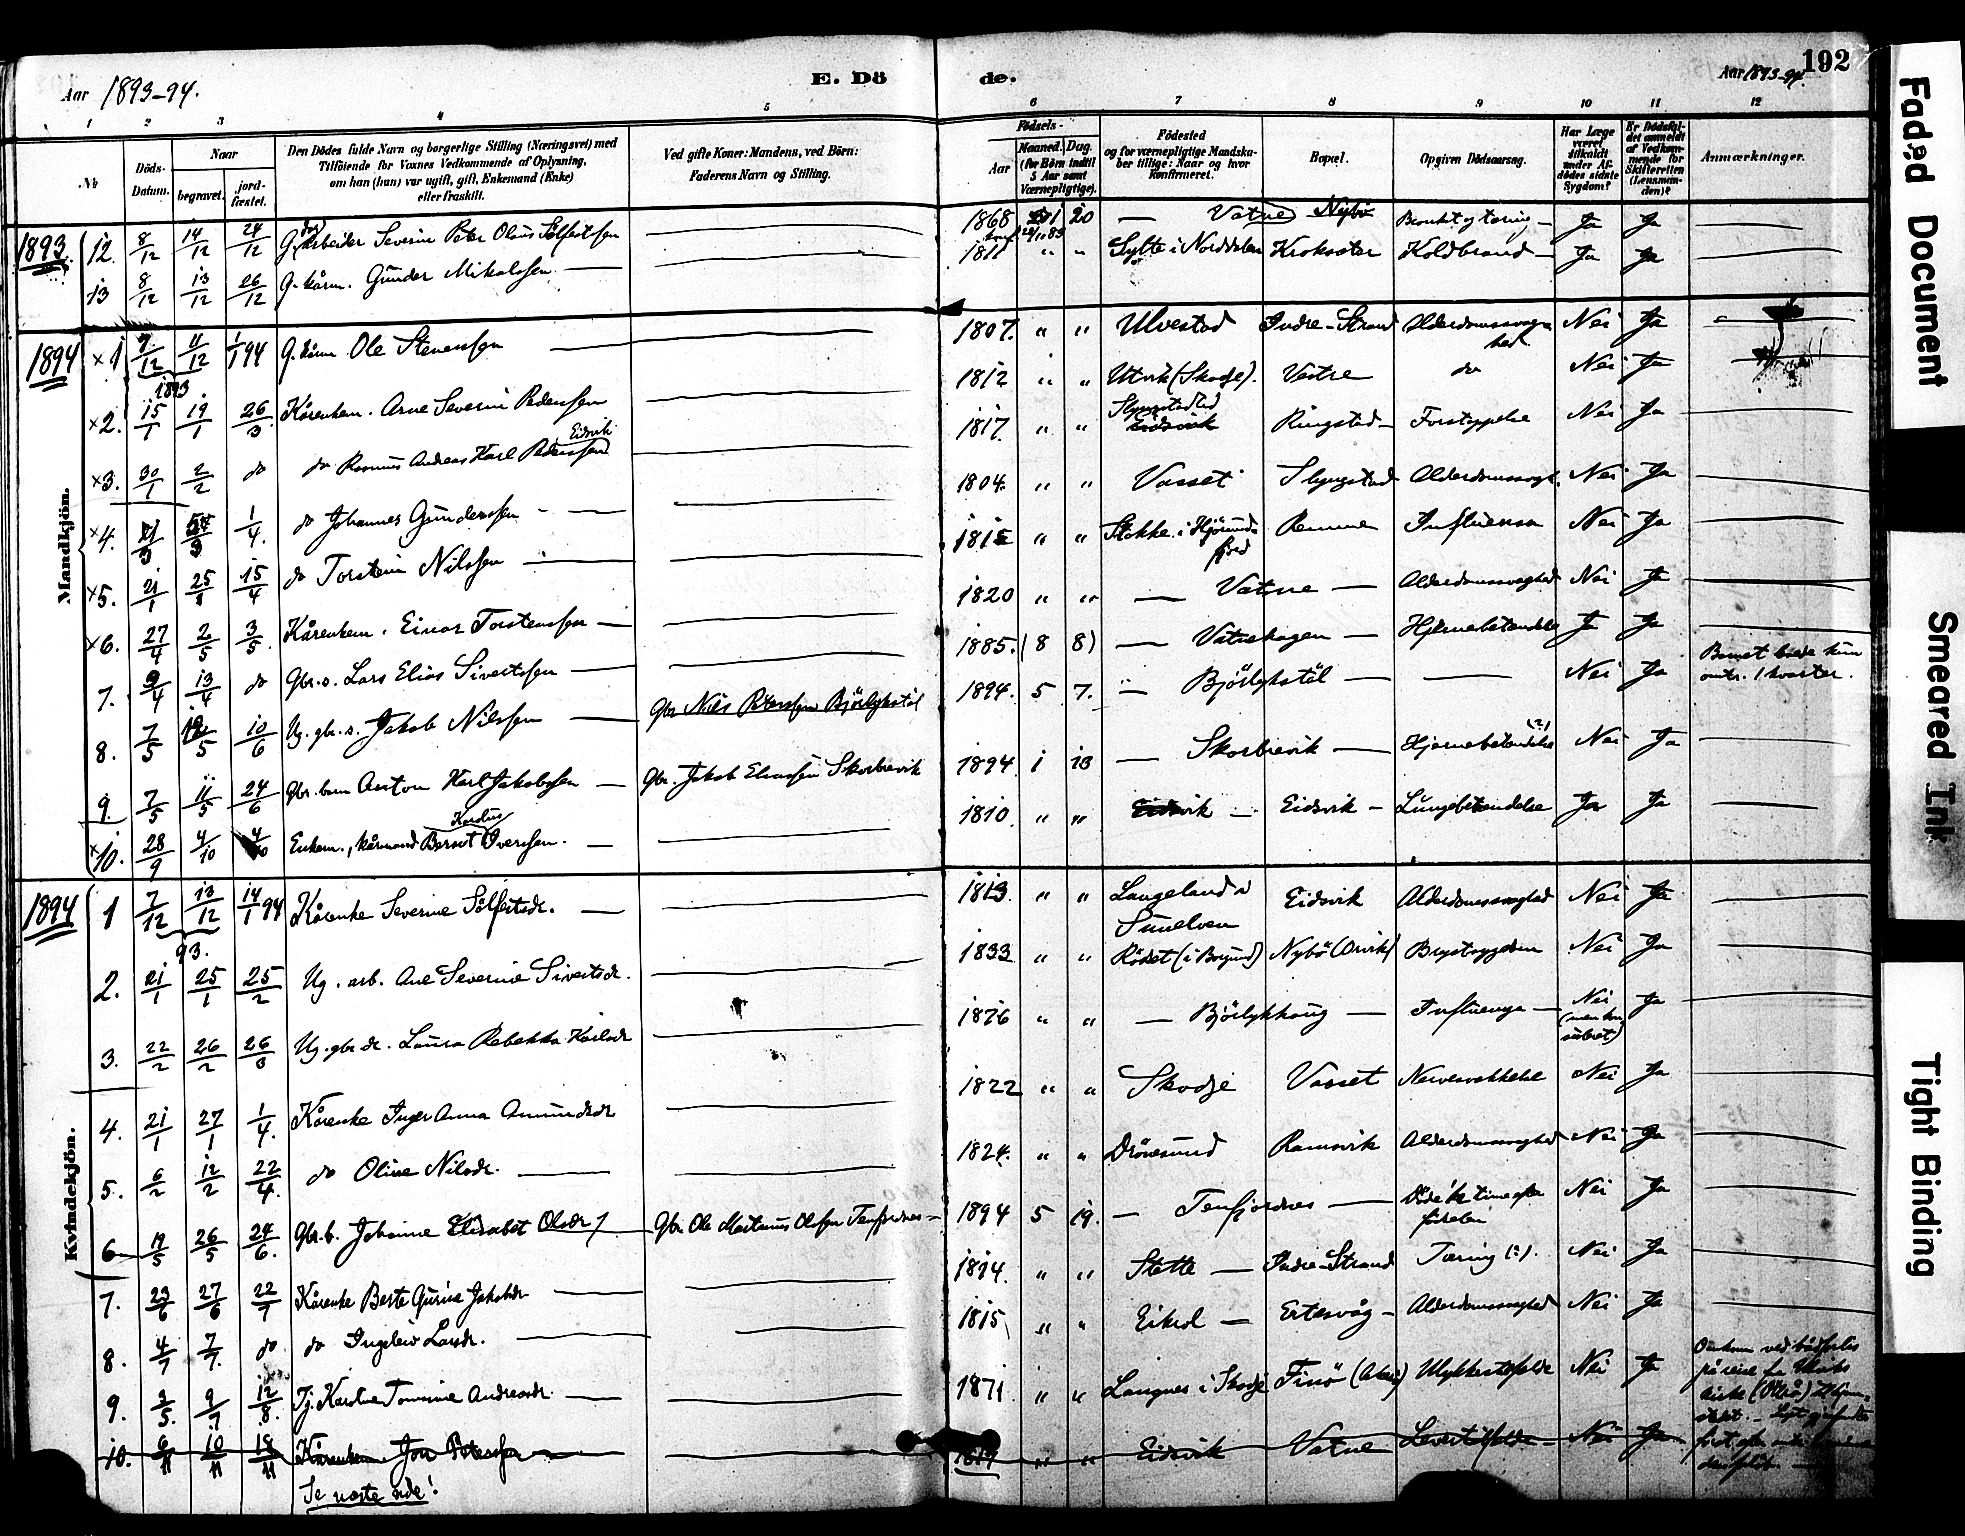 Aar 1893-94.
E. Dö
de.
Aar 1893-94.
192
1 2 3 4 5 6 7 8 9 10 11 12
№
Döds-Datum.
Naar
begravet.
jord-fæstet.
Den Dödes fulde Navn og borgerlige Stilling (Næringsvei) med
Tilföiende for Voxnes Vedkommende af Oplysning,
om han (hun) var ugift, gift, Enkemand (Enke)
eller fraskilt.
Ved gifte Koner: Mandens, ved Börn:
Faderens Navn og Stilling.
Födsels-
Aar
Maaned. Dag.
(for Börn indtil
5 Aar samt
Værnepligtige).
Födested
og for værnepligtige Mandska-
ber tillige: Naar og hvor
Konfirmeret.
Bopæl.
Opgiven Dödsaarsag.
Har Læge
været
tilkaldt
under Af-
dödes sidste
Sygdom?
Er Dödsfal-
det anmeldt
af Vedkom-
mende for
Skifteretten
(Lensman-
den)?
Anmærkninger.
1893. 12. 8/12 14/12 24/12 G. arbeider Severin Peter Olaus Sölfestsen 1868 1 20 — Vatne Nybö Bronkit og tæring — Ja Ja
13 8/12 13/12 26/12 G. kårm. Gunder Mikalssen — 1811 " " Sylte i Norddalen Koldbrand — Ja Ja
Mandkjön.
1894 ×1 7/12 11/12 1/1 94 G. kårm. Ole Stenerssen — 1807. " " Ulvestad Indre-Strand Nei Ja
1893
×2. 15/1 19/1 26/3 Kårenkem. Arne Severin Pederssen — 1812 " " Utvik (Skodje). Vestre do Nei Ja
×3. 30/1 2/2 do do Rasmus Andreas Karl Pederssen Eidsvik 1817. " " Eidsvik Ringstad — Forstoppelse Nei Ja
×4. 1/4. do Johannes Gunderssen — 1804. " " Vasset Slyngstad Nei Ja
×5. 21/1 15/4 do Torstein Nilssen — 1815 " " Stokke i Hjörund-
fjord Remme Influensa Nei Ja
×6. 27/4 2/5 3/5. Kårenkem. Einar Torstenssen — 1820 " " — Vatne — Alderdomssvaghed Nei Ja
7. 9/4 13/4 do Gbr.s. Lars Elias Sivertssen — 1885. (8 8) — Vatnehagen — Hjernebetændelse Ja Ja
8. 7/5 12/5 10/6 Ug. gbr.s. Jakob Nilssen — Gbr Nils Peterssen Björlykstöl 1894. 5 7. — Björlykstöl — Nei Ja Barnet levde kun
omtr. 1 kvarter.
9. 7/5 11/5 24/6 Gbr. barn Anton Karl Jakobssen — Gbr. Jakob Eliassen Skorbrevik 1894 1 13 — Skorbrevik — Hjernebetændelse (?) Nei Ja
×10. 28/9 4/10 Enkem., kårmand Bernt Karolus Iverssen. — 1810 " " Eidsvik — Eidsvik — Lungebetændelse Ja Ja
Kvindekjön.
1894 1 7/12 13/12 14/1 94 Kårenke Severine Sölfestsdr. — 1813. " " Langeland i
Sunelven Eidsvik Alderdomssvaghed Nei Ja
93.
2. 21/1 25/1 25/2 Ug. arb. Ane Severine Sivertsdr. 1833 " " Rödset (i Borgund) Nybö (Örvik) Brystsygdom Nei Ja
3. 22/2 26/2 26/3 Ug. gbr dr. Laura Rebekka Karlsdr 1876 " " — Björlykhaug — Influenza — Nei Ja
4. 21/1 27/1 1/4. Kårenke Inger Anna Amundsdr 1822 " " Skodje Vasset Nei Ja
5. 6/2 12/2 22/4. do Oline Nilsdr. — 1824. " " Drönesund Ramsvik Alderdomssvaghed Nei Ja
6 19/5 26/5 24/6. Gbr.b. Johanne Elisabet Olsdr Gbr Ole Martinus Olssen Tenfjordnes — 1894 5 19. — Tenfjordnes — Döde ½ time efter
födselen Nei Ja
7. 23/6 27/6 22/7 Kårenke Berte Gurine Jakobsdr — 1814. " " Stette — Indre-Strand Tæring (?). Nei Ja
8. 4/7 7/7. do do Ingeleiv Larsdr. — 1815 " " Eikrol — Ertesvåg — Alderdomssvaghed Nei Ja
9. 3/5. 9/7 12/8. Tj. Karoline Tomine Andreasdr. — 1871. " " Langnes i Skodje Ulykkestilfælde Nei Ja Omkom ved bådforlis
10. 6/11 10/11 18/11 Kårenkem. Jon Peterssen — 1819 " " Eidsvik Vatne Nei Ja
Se næste side!
Faded Document
Smeared Ink
Tight Binding